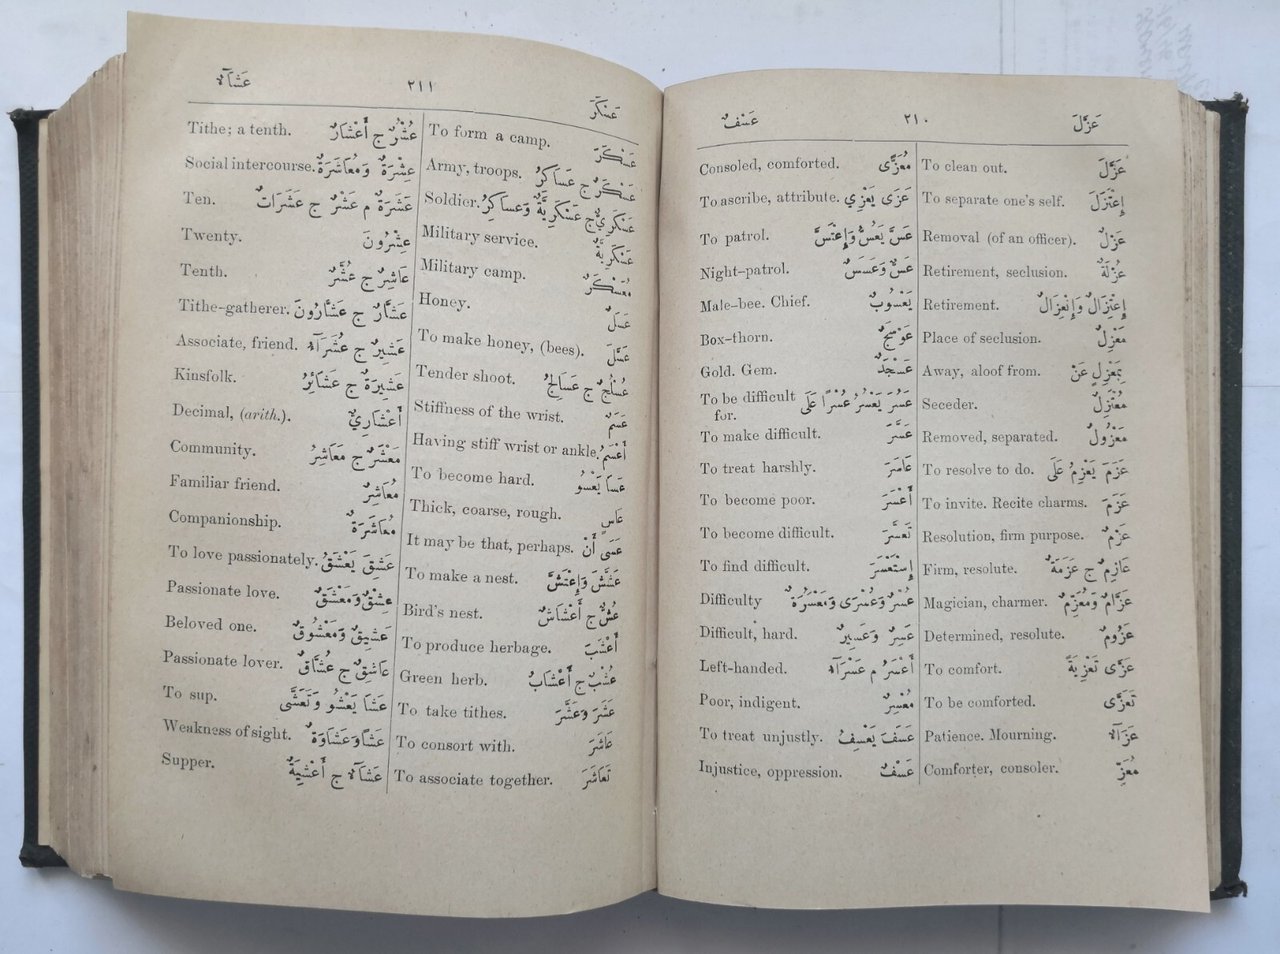 عَزَلَ ٢١٠ عَسْفٌ
To clean out. عَزَلَ
To separate one's self. إِعْتَزَلَ
Removal (of an officer). عَزْلٌ
Retirement, seclusion. عُزْلَةٌ
Retirement. إِعْتِزَالٌ وَإِنْعِزَالٌ
Place of seclusion. مَعْزِلٌ
Away, aloof from. بِمَعْزِلٍ عَنْ
Seceder. مُعْتَزِلٌ
Removed, separated. مَعْزُولٌ
To resolve to do. عَزَمَ يَعْزِمُ عَلَى
To invite. Recite charms. عَزَمَ
Resolution, firm purpose. عَزْمٌ
Firm, resolute. عَازِمٌ ج عَزَمَةٌ
Magician, charmer. عَزَّامٌ وَمُعَزِّمٌ
Determined, resolute. عَزُومٌ
To comfort. عَزَّى تَعْزِيَةً
To be comforted. تَعَزَّى
Patience. Mourning. عَزَآءٌ
Comforter, consoler. مُعَزٍّ
Consoled, comforted. مُعَزًّى
To ascribe, attribute. عَزَى يَعْزِي
To patrol. عَسَّ يَعُسُّ وَإِعْتَسَّ
Night-patrol. عَسٌّ وَعَسَسٌ
Male-bee. Chief. يَعْسُوبٌ
Box-thorn. عَوْسَجٌ
Gold. Gem. عَسْجَدٌ
To be difficult عَسُرَ يَعْسُرُ عُسْرًا عَلَى
for.
To make difficult. عَسَّرَ
To treat harshly. عَاسَرَ
To become poor. أَعْسَرَ
To become difficult. تَعَسَّرَ
To find difficult. إِسْتَعْسَرَ
Difficulty عُسْرٌ وَعُسْرَى وَمَعْسُرَةٌ
Difficult, hard. عَسِرٌ وَعَسِيرٌ
Left-handed. أَعْسَرُ م عَسْرَآءُ
Poor, indigent. مُعْسِرٌ
To treat unjustly. عَسَفَ يَعْسِفُ
Injustice, oppression. عَسْفٌ
عَسْكَرَ ٢١١ عَشَآءٌ
To form a camp. عَسْكَرَ
Army, troops. عَسْكَرٌ ج عَسَاكِرُ
Soldier. عَسْكَرِيٌّ ج عَسْكَرِيَّةٌ وَعَسَاكِرُ
Military service. عَسْكَرِيَّةٌ
Military camp. مُعَسْكَرٌ
Honey. عَسَلٌ
To make honey, (bees). عَسَّلَ
Tender shoot. عُسْلُجٌ ج عَسَالِجُ
Stiffness of the wrist. عَسَمٌ
Having stiff wrist or ankle. أَعْسَمُ
To become hard. عَسَا يَعْسُو
Thick, coarse, rough. عَاسٍ
It may be that, perhaps. عَسَى أَنْ
To make a nest. عَشَّشَ وَإِعْتَشَّ
Bird's nest. عُشٌّ ج أَعْشَاشٌ
To produce herbage. أَعْشَبَ
Green herb. عُشْبٌ ج أَعْشَابٌ
To take tithes. عَشَرَ وَعَشَّرَ
To consort with. عَاشَرَ
To associate together. تَعَاشَرَ
Tithe; a tenth. عُشْرٌ ج أَعْشَارٌ
Social intercourse. عِشْرَةٌ وَمُعَاشَرَةٌ
Ten. عَشَرَةٌ م عَشْرٌ ج عَشَرَاتٌ
Twenty. عِشْرُونَ
Tenth. عَاشِرٌ ج عُشَّرٌ
Tithe-gatherer. عَشَّارٌ ج عَشَّارُونَ
Associate, friend. عَشِيرٌ ج عُشَرَآءُ
Kinsfolk. عَشِيرَةٌ ج عَشَائِرُ
Decimal, (arith.). أَعْشَارِيٌّ
Community. مَعْشَرٌ ج مَعَاشِرُ
Familiar friend. مُعَاشِرٌ
Companionship. مُعَاشَرَةٌ
To love passionately. عَشِقَ يَعْشَقُ
Passionate love. عِشْقٌ وَمَعْشَقٌ
Beloved one. عَشِيقٌ وَمَعْشُوقٌ
Passionate lover. عَاشِقٌ ج عُشَّاقٌ
To sup. عَشَا يَعْشُو وَتَعَشَّى
Weakness of sight. عَشًا وَعَشَاوَةٌ
Supper. عَشَآءٌ ج أَعْشِيَةٌ